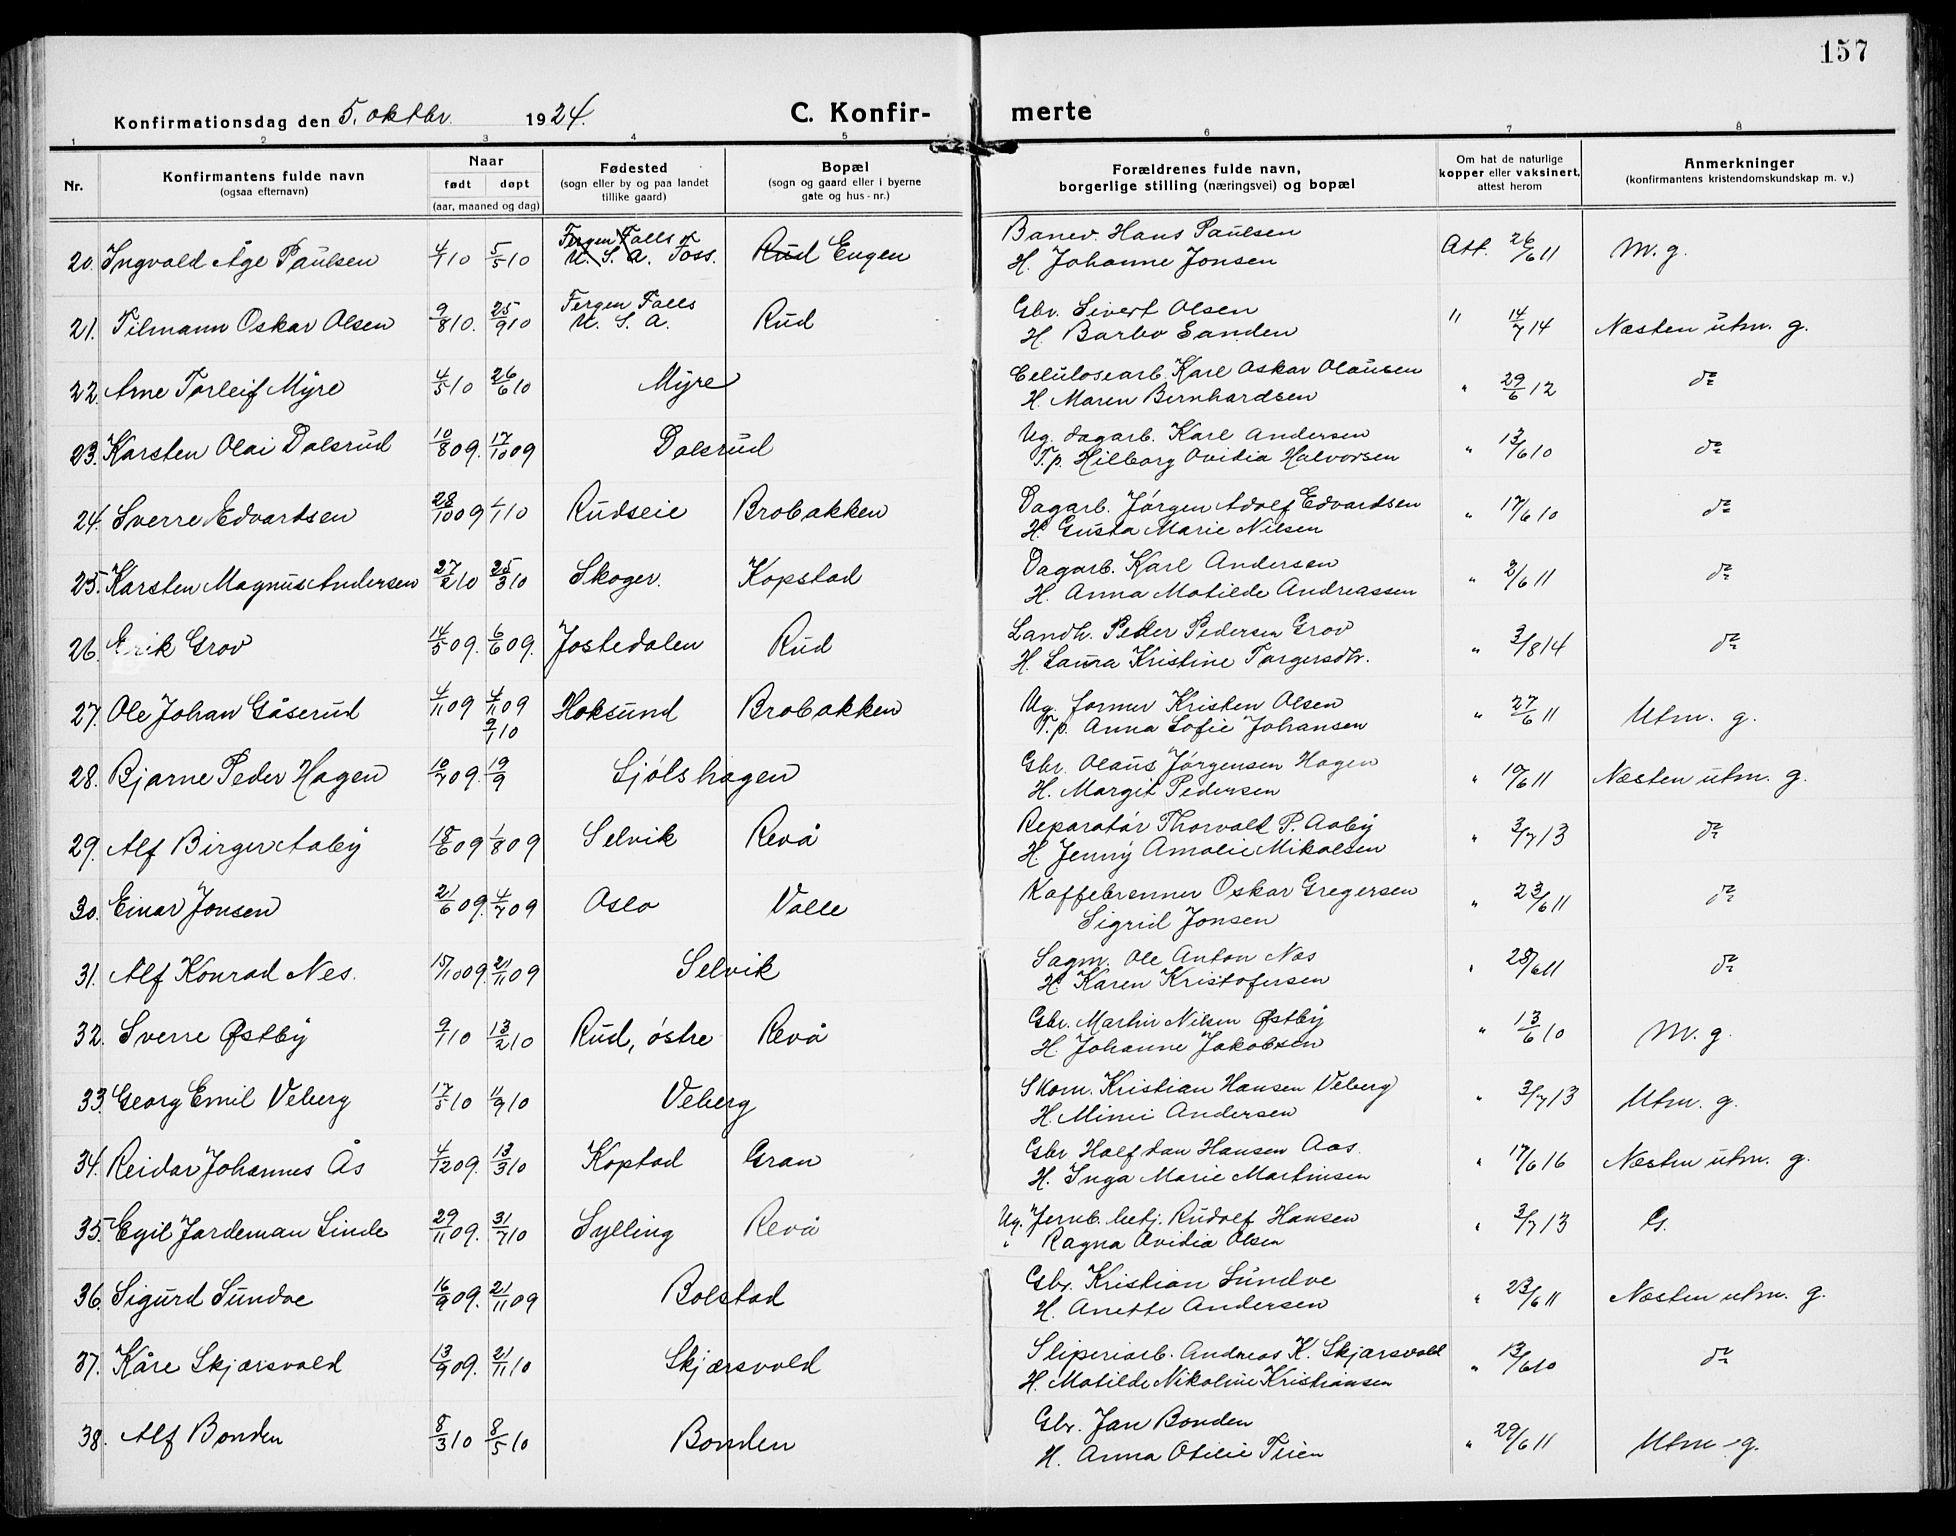 157
Konfirmationsdag den 5. oktbr. 1924.
C. Konfir- merte
1 2 3 4 5 6 7 8
Nr.
Konfirmantens fulde navn
(ogsaa efternavn)
Naar
født døpt
(aar, maaned og dag)
Fødested
(sogn eller by og paa landet
tillike gaard)
Bopæl
(sogn og gaard eller i byerne
gate og hus-nr.)
Forældrenes fulde navn,
borgerlige stilling (næringsvei) og bopæl
Om hat de naturlige
kopper eller vaksinert,
attest herom
Anmerkninger
(konfirmantens kristendomskundskap m. v.)
Fergen Falls
20. Ingvald Åge Paulsen 4/1 10 5/5 10 U. S. A. Foss. Rud Engen
Banev. Hans Paulsen
H. Johanne Jonsen
Att. 26/6 11 M. g.
Fergen Falls
21. Tilmann Oskar Olsen 9/8 10. 25/9 10 U. S. A. Rud
Gbr. Sivert Olsen
H. Barbo Sanden
" 14/7 14 Næsten utm. g.
22. Arne Torleif Myre 4/5 10 26/6 10 Myre
Celulosearb. Karl Oskar Olausen
H. Maren Bernhardsen
" 29/6 12 do
23. Karsten Olai Dalsrud 10/8 09. 17/10 09 Dalsrud
Ug. dagarb. Karl Andersen
T.p. Hilborg Ovidia Halvorsen
" 13/6 10 do
24. Sverre Edvartsen 28/10 09 1/1 10 Rudseie Brobakken
Dagarb. Jørgen Adolf Edvardsen
H. Gusta Marie Nilsen
" 17/6 10 do
25. Karsten Magnus Andersen 27/2 10 25/3 10 Skoger. Kopstad
Dagarb. Karl Andersen
H. Anna Matilde Andreassen
" 2/6 11 do
26. Erik Grov 14/5 09. 6/6 09. Jostedalen Rud
Landh. Peder Pedersen Grov
H. Laura Kristine Torgersdtr.
" 3/8 14 do
27. Ole Johan Gåserud 4/11 09 4/11 09 Hoksund Brobakken
9/1 10
Ug. former Kristen Olsen
T.p. Anna Sofie Johansen
" 27/6 11 Utm. g.
28. Bjarne Peder Hagen 10/7 09. 19/9 Sjølshagen
Gbr. Olaus Jørgensen Hagen
H. Margit Pedersen
" 19/6 11 Næsten utm. g.
29. Alf Birger Aaby 18/6 09 1/8 09 Selvik Revå
Reparatør Thorvald P. Aaby
H. Jenny Amalie Mikalsen
" 3/7 13 do
30. Einar Jonsen 21/6 09. 4/7 09 Oslo Valle
Kaffebrenner Oskar Gregersen
Sigrid Jonsen
" 23/6 11 do
31. Alf Konrad Nes. 15/10 09. 21/11 09 Selvik
Sagm. Ole Anton Næs
H. Karen Kristofersen
" 28/6 11 do
32. Sverre Østby 9/1 10 13/2 10 Rud, østre Revå
Gbr. Martin Nilsen Østby
H. Johanne Jakobsen
" 13/6 10 M. g.
33. Georg Emil Veberg 17/5 10 11/9 10 Veberg
Skom. Kristian Hansen Veberg
H. Mimi Andersen
" 3/7 13 Utm. g.
34. Reidar Johannes Ås 4/12 09. 13/3 10 Koptad Gran
Gbr. Halfdan Hansen Aas.
H. Inga Marie Martinsen
" 17/6 16 Næsten utm. g.
35. Egil Jardeman Linde 29/11 09. 31/7 10 Sylling Revå
Ug. Jernb. betj. Rudolf Hansen
" Ragna Ovidia Olsen
" 3/7 13 G.
36. Sigurd Sundve 16/9 09. 21/11 09 Bolstad
Gbr. Kristian Sundve
H. Anette Andersen
" 23/6 11 Næsten utm. g.
37. Kåre Skjærsvold 13/9 09. 21/11 10 Skjærsvold
Sliperiarb. Andreas K. Skjærsvold
H. Matilde Nikoline Kristiansen
" 13/6 10 do
38. Alf Bonden 8/3 10 8/5 10 Bonden
Gbr. Jan Bonden
H. Anna Otilie Teien
" 29/6 11 Utm. g.